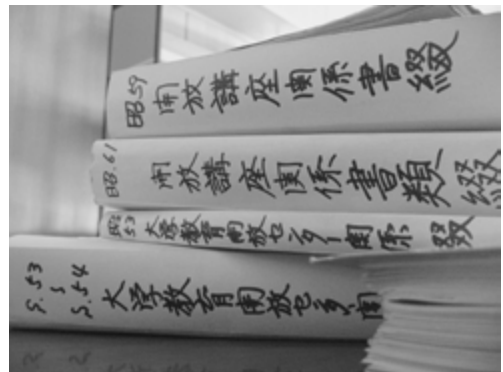 昭.59 開放講座関係書綴
昭.61 開放講座関係書類綴
昭53 大学教育開放センター関係綴
S.53
〜
S.54
大学教育開放センター関